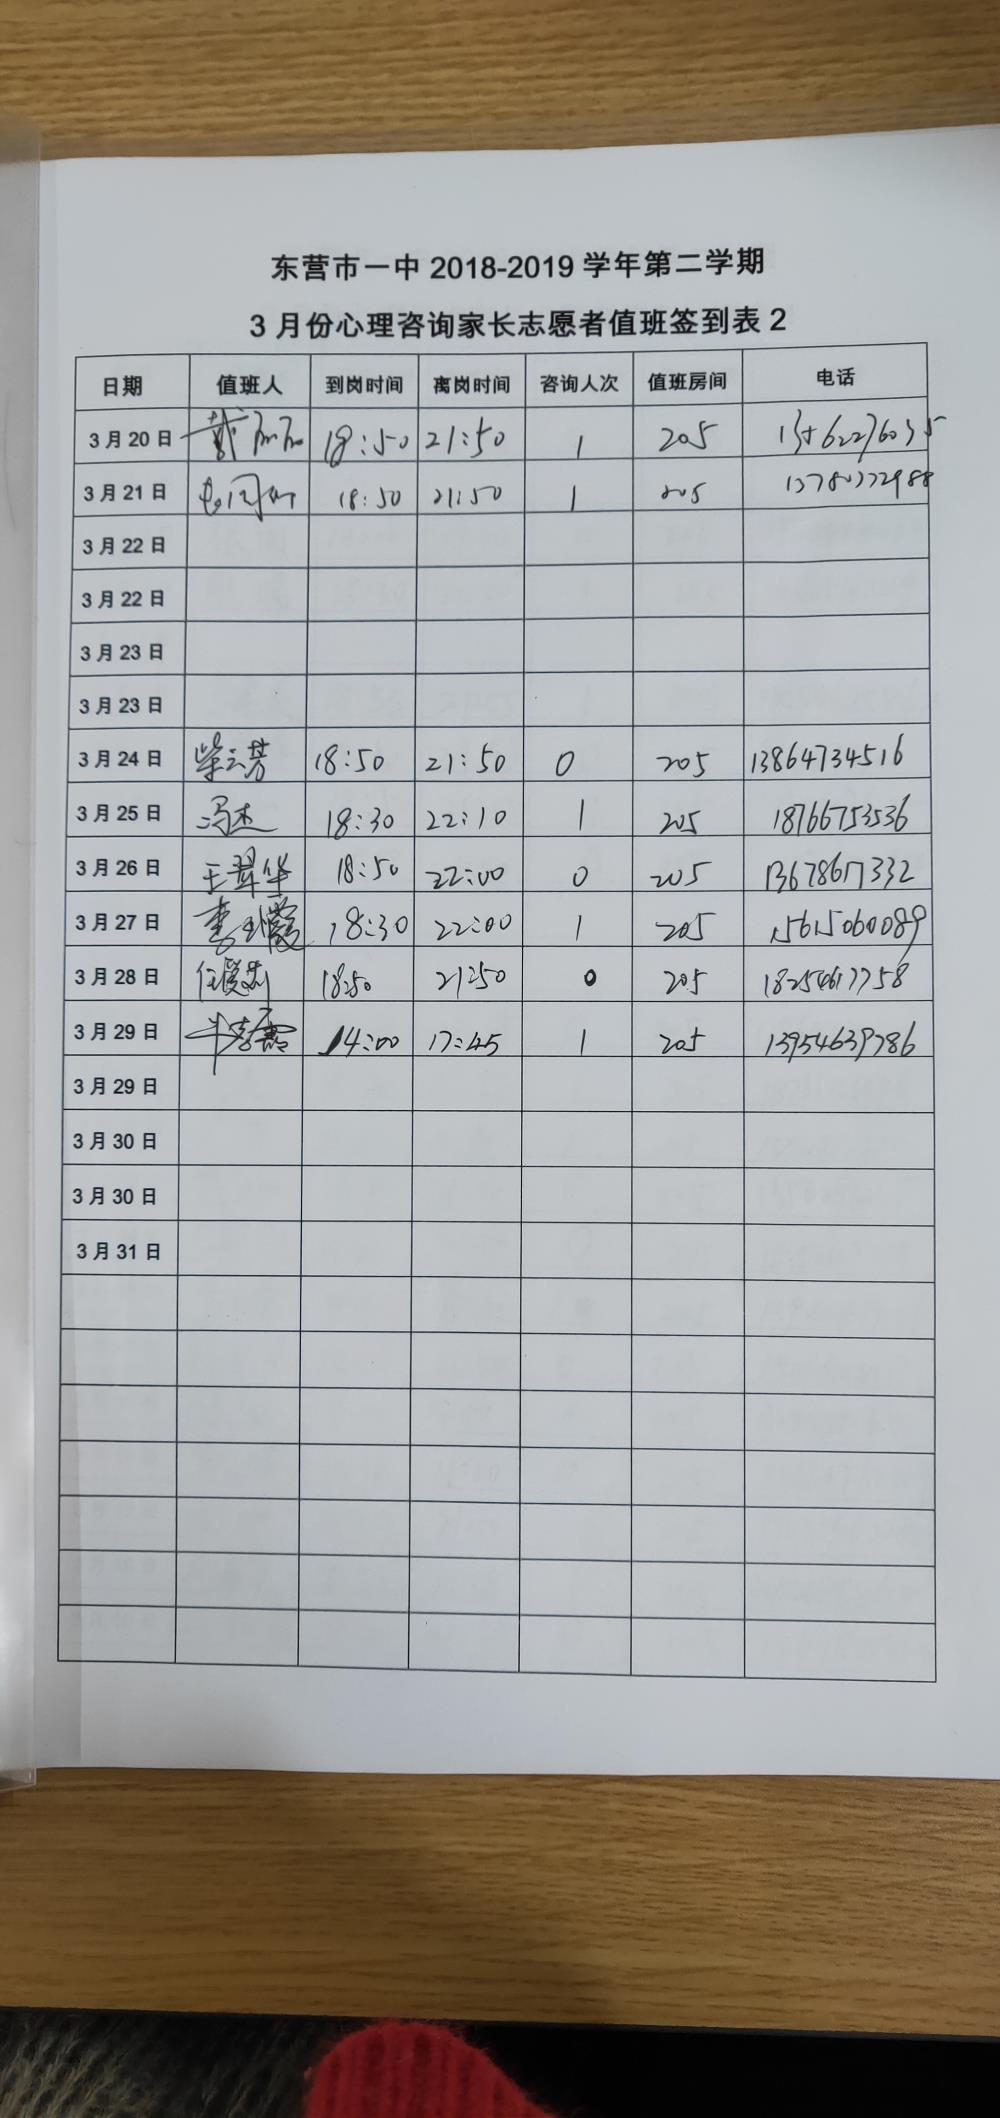 东营市一中 2018-2019 学年第二学期
3 月份心理咨询家长志愿者值班签到表 2
日期 值班人 到岗时间 离岗时间 咨询人次 值班房间 电话
3 月 20 日 戴 18:50 21:50 1 205
3 月 21 日 18:50 21:50 1 205
3 月 22 日
3 月 22 日
3 月 23 日
3 月 23 日
3 月 24 日 柴云芳 18:50 21:50 0 205 13864734516
3 月 25 日 冯杰 18:30 22:10 1 205 18766753536
3 月 26 日 王翠华 18:50 22:00 0 205 13678617332
3 月 27 日 李玉霞 18:30 22:00 1 205 15615060089
3 月 28 日 任爱 18:50 21:50 0 205
3 月 29 日 14:00 17:45 1 205 13954639786
3 月 29 日
3 月 30 日
3 月 30 日
3 月 31 日